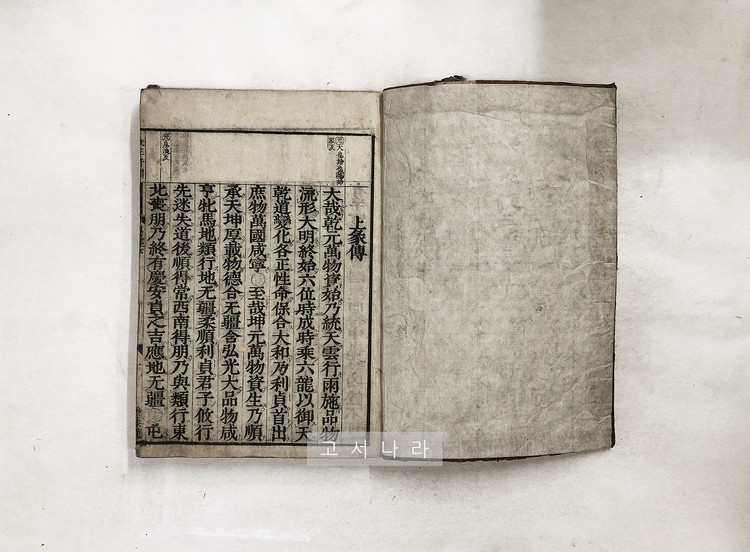 上彖傳
大哉乾元萬物資始乃統天雲行雨施品物
流形大明終始六位時成時乘六龍以御天
乾道變化各正性命保合大和乃利貞首出
庶物萬國咸寧○至哉坤元萬物資生乃順
承天坤厚載物德合无疆含弘光大品物咸
亨牝馬地類行地无疆柔順利貞君子攸行
先迷失道後順得常西南得朋乃與類行東
北喪朋乃終有慶安貞之吉應地无疆○屯
고서나라